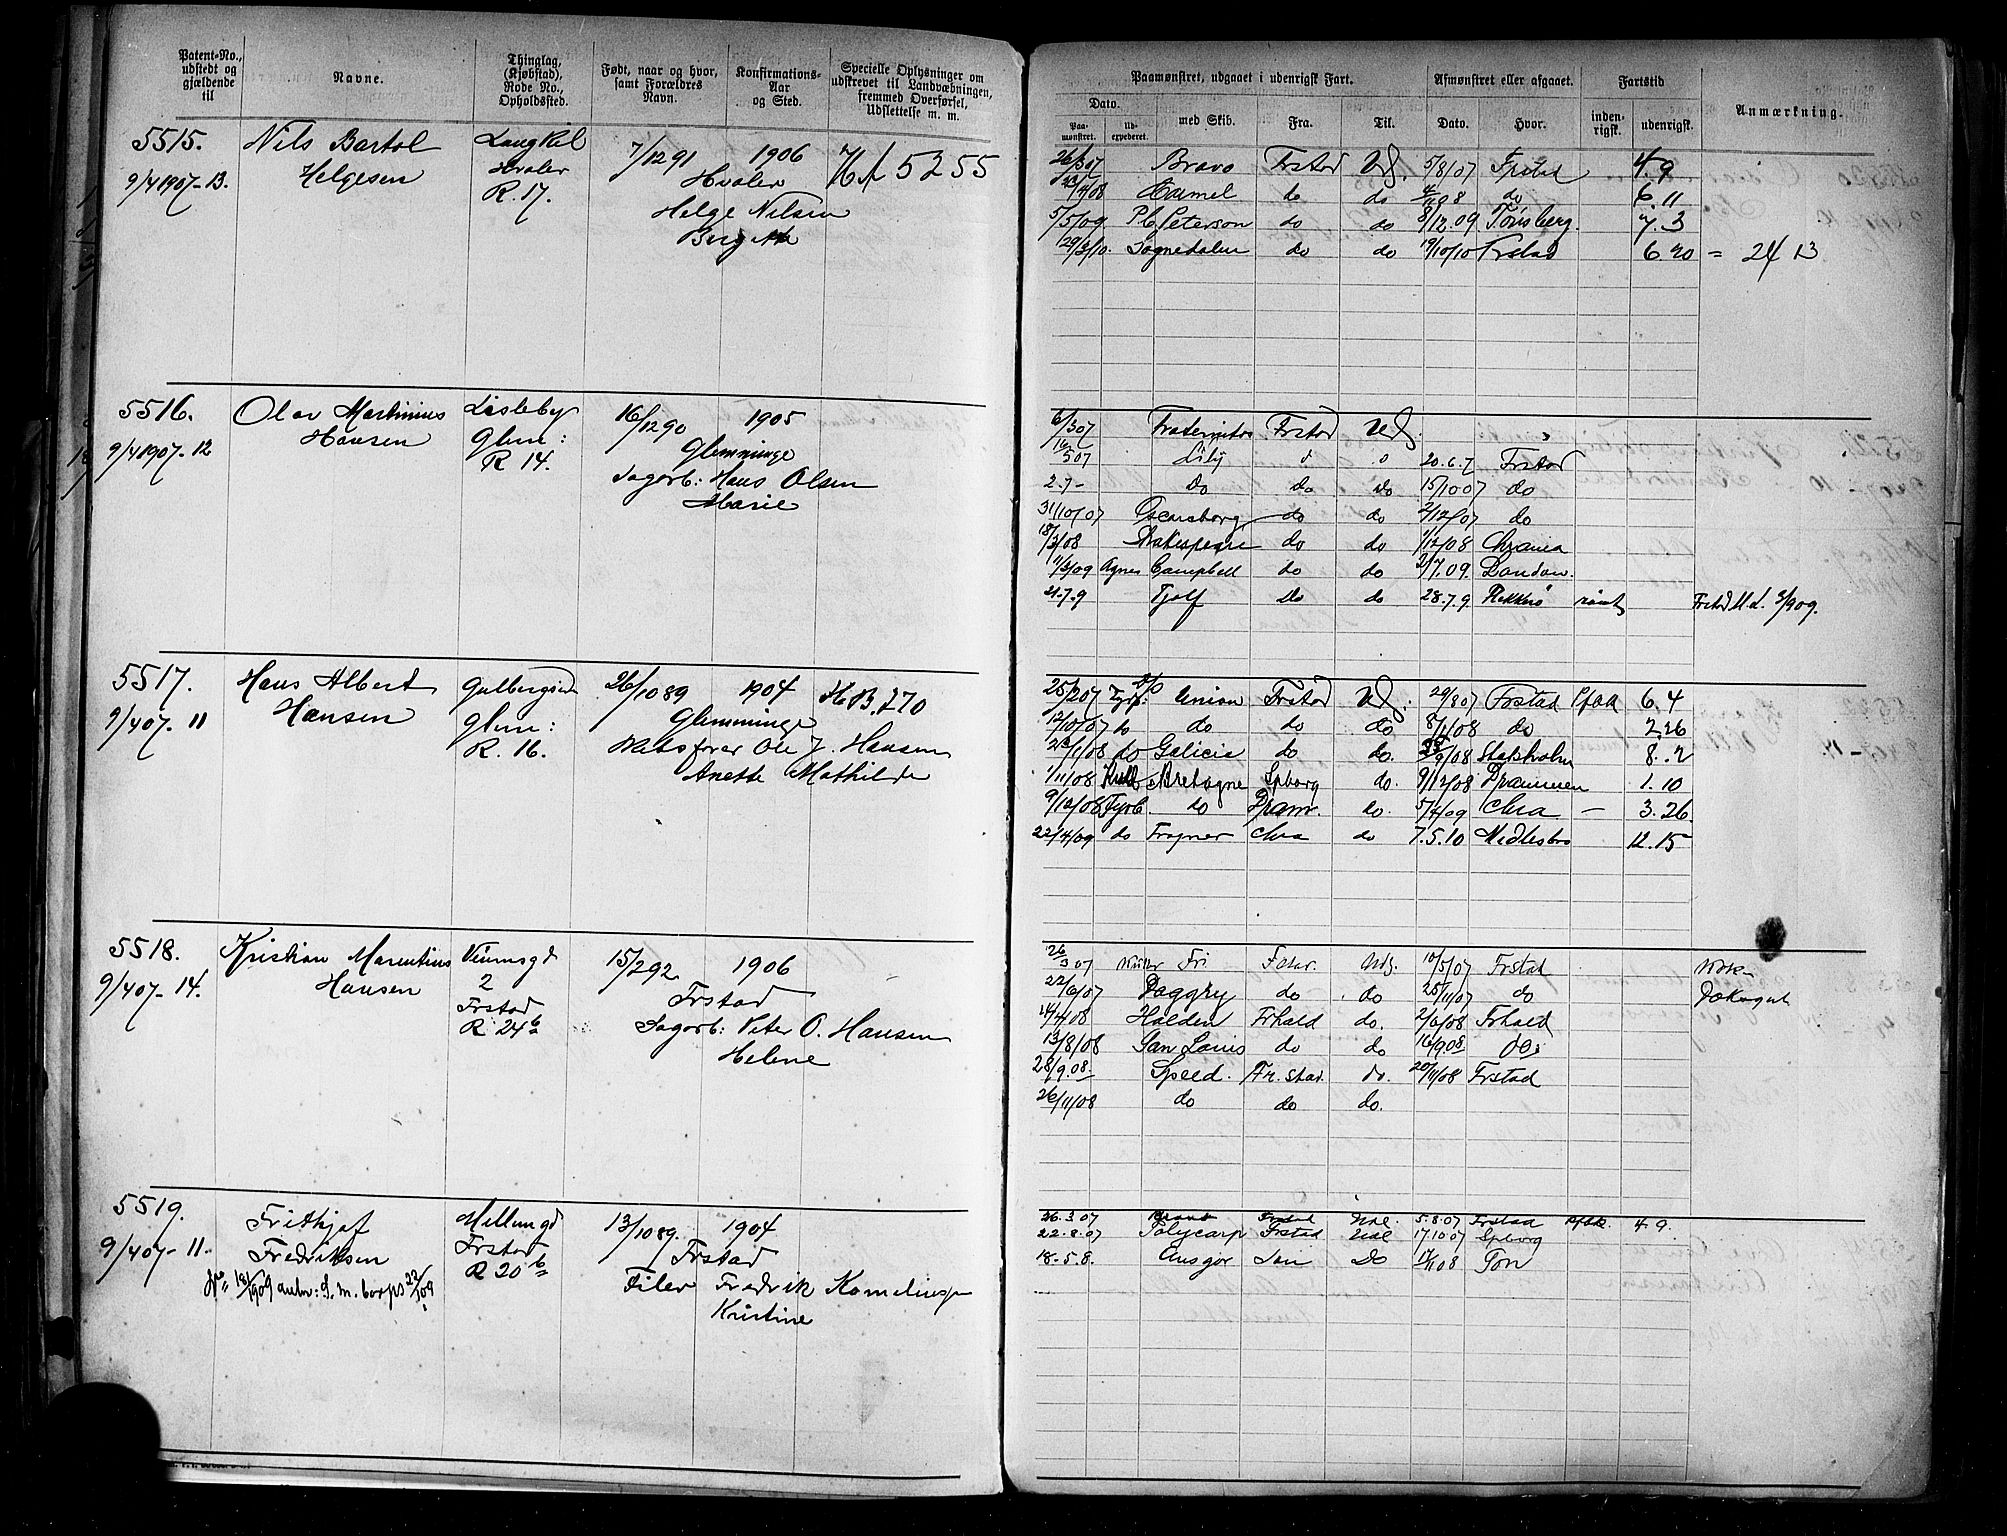 Patent-No., udstedt og gjældende til
Navne.
Thinglag, (Kjøbstad), Rode No., Opholdssted.
Født, naar og hvor, samt Forældres Navn.
Konfirmations-Aar og Sted.
Specielle Oplysninger om udskrevet til Landvæbningen, fremmed Overførsel, Udslettelse m. m.
Paamønstret, udgaaet i udenrigsk Fart.
Afmønstret eller afgaaet.
Fartstid
Anmærkning.
Dato.
Paa-mønstret.
Ud-expederet.
med Skib.
Fra.
Til.
Dato.
Hvor.
inden-rigsk.
udenrigsk.
5515. Nils Bartol Hvaler 7/12 91 1906 5255
9/4 1907-13. Helgesen R. 17. Hvaler
Helge Nilsen
26/3 07 Bravo Frstad Udl. 5/8/07 Frstad 4.9
Carmel do do do 6.11
5/5/09 P. C. Peterson do do 8/12.09 Tønsberg. 7.3
29/3/10. Sognedalen do do 19/10/10 Frstad 6.20 = 24 13
5516. Olav Martinius Lisleby 16/12 90 1905
9/4 1907-12 Hansen Glem: Glemminge
R 14.
Sagarb: Hans Olsen
Marie
6/3 07 Fraternitas Frstad Udl.
507 Lily 20.6.7 Frstad
2.7- Do Do Do 15/10 07 do
31/10/07 Oscarsborg do do 2/12/07 do
18/3/08 Shakespeare do do 1/12/08 Chrania
11/3/09 Agnes Campbell do do 2/7.09. London.
21.7.9 Tjalf do do 28.7.9. Flekkerø Frstad U.d. 3/9 09.
5517. Hans Albert 26/10 89 1904 H.B. 270
9/4 07-11 Hansen Glem: Glemminge
R. 16. Ole J. Hansen
Anette Mathilde
25/2 07 Fyrb: D/S Union Frstad Udl: 29/8 07 Frstad 6.4
12/10/07 do do do do 8/1/08 do 2.26
do Galicia do do. Stockholm 8..2
1/11/08 Bretagne Spborg do. 9/12/08 Drammen 1.10
9/12/08 Fyrb. do Dram. do. 5/4/09 Chra — 3.26.
22/4/09 do Frogner Chra do 7.5.10 Midlesbro 12.15
5518. Kristian Marentius 15/2 92 1906
9/4 07-14. Hansen 2 Frstad
Frstad Sagarb: Peter O. Hansen
R 24b Helene
26/3 07 Fri Udl. 10/5/07 Frstad
22/6/07 Daggry do do 25/11/07 do
Halden Frhald do. 2/6/08 Frhald
13/8/08 San Louis do do 16/9.08 do
28/9.08 Speed. Fr.stad. do. 20/11/08 Frstad
26/11/08 do do do.
5519. Frithjof 13/10 89. 1904
9/4 07-11. Fredriksen Frstad Frstad
R 20b Filer Fredrik Korneliussen
Kristine
26.3.07 Bravo Frstad Udl. 5.8.07 Frstad 4.9.
22.8.07 Polycarp Frstad Udl 17.10 07 Spborg
18.5.8. Ansgar Do